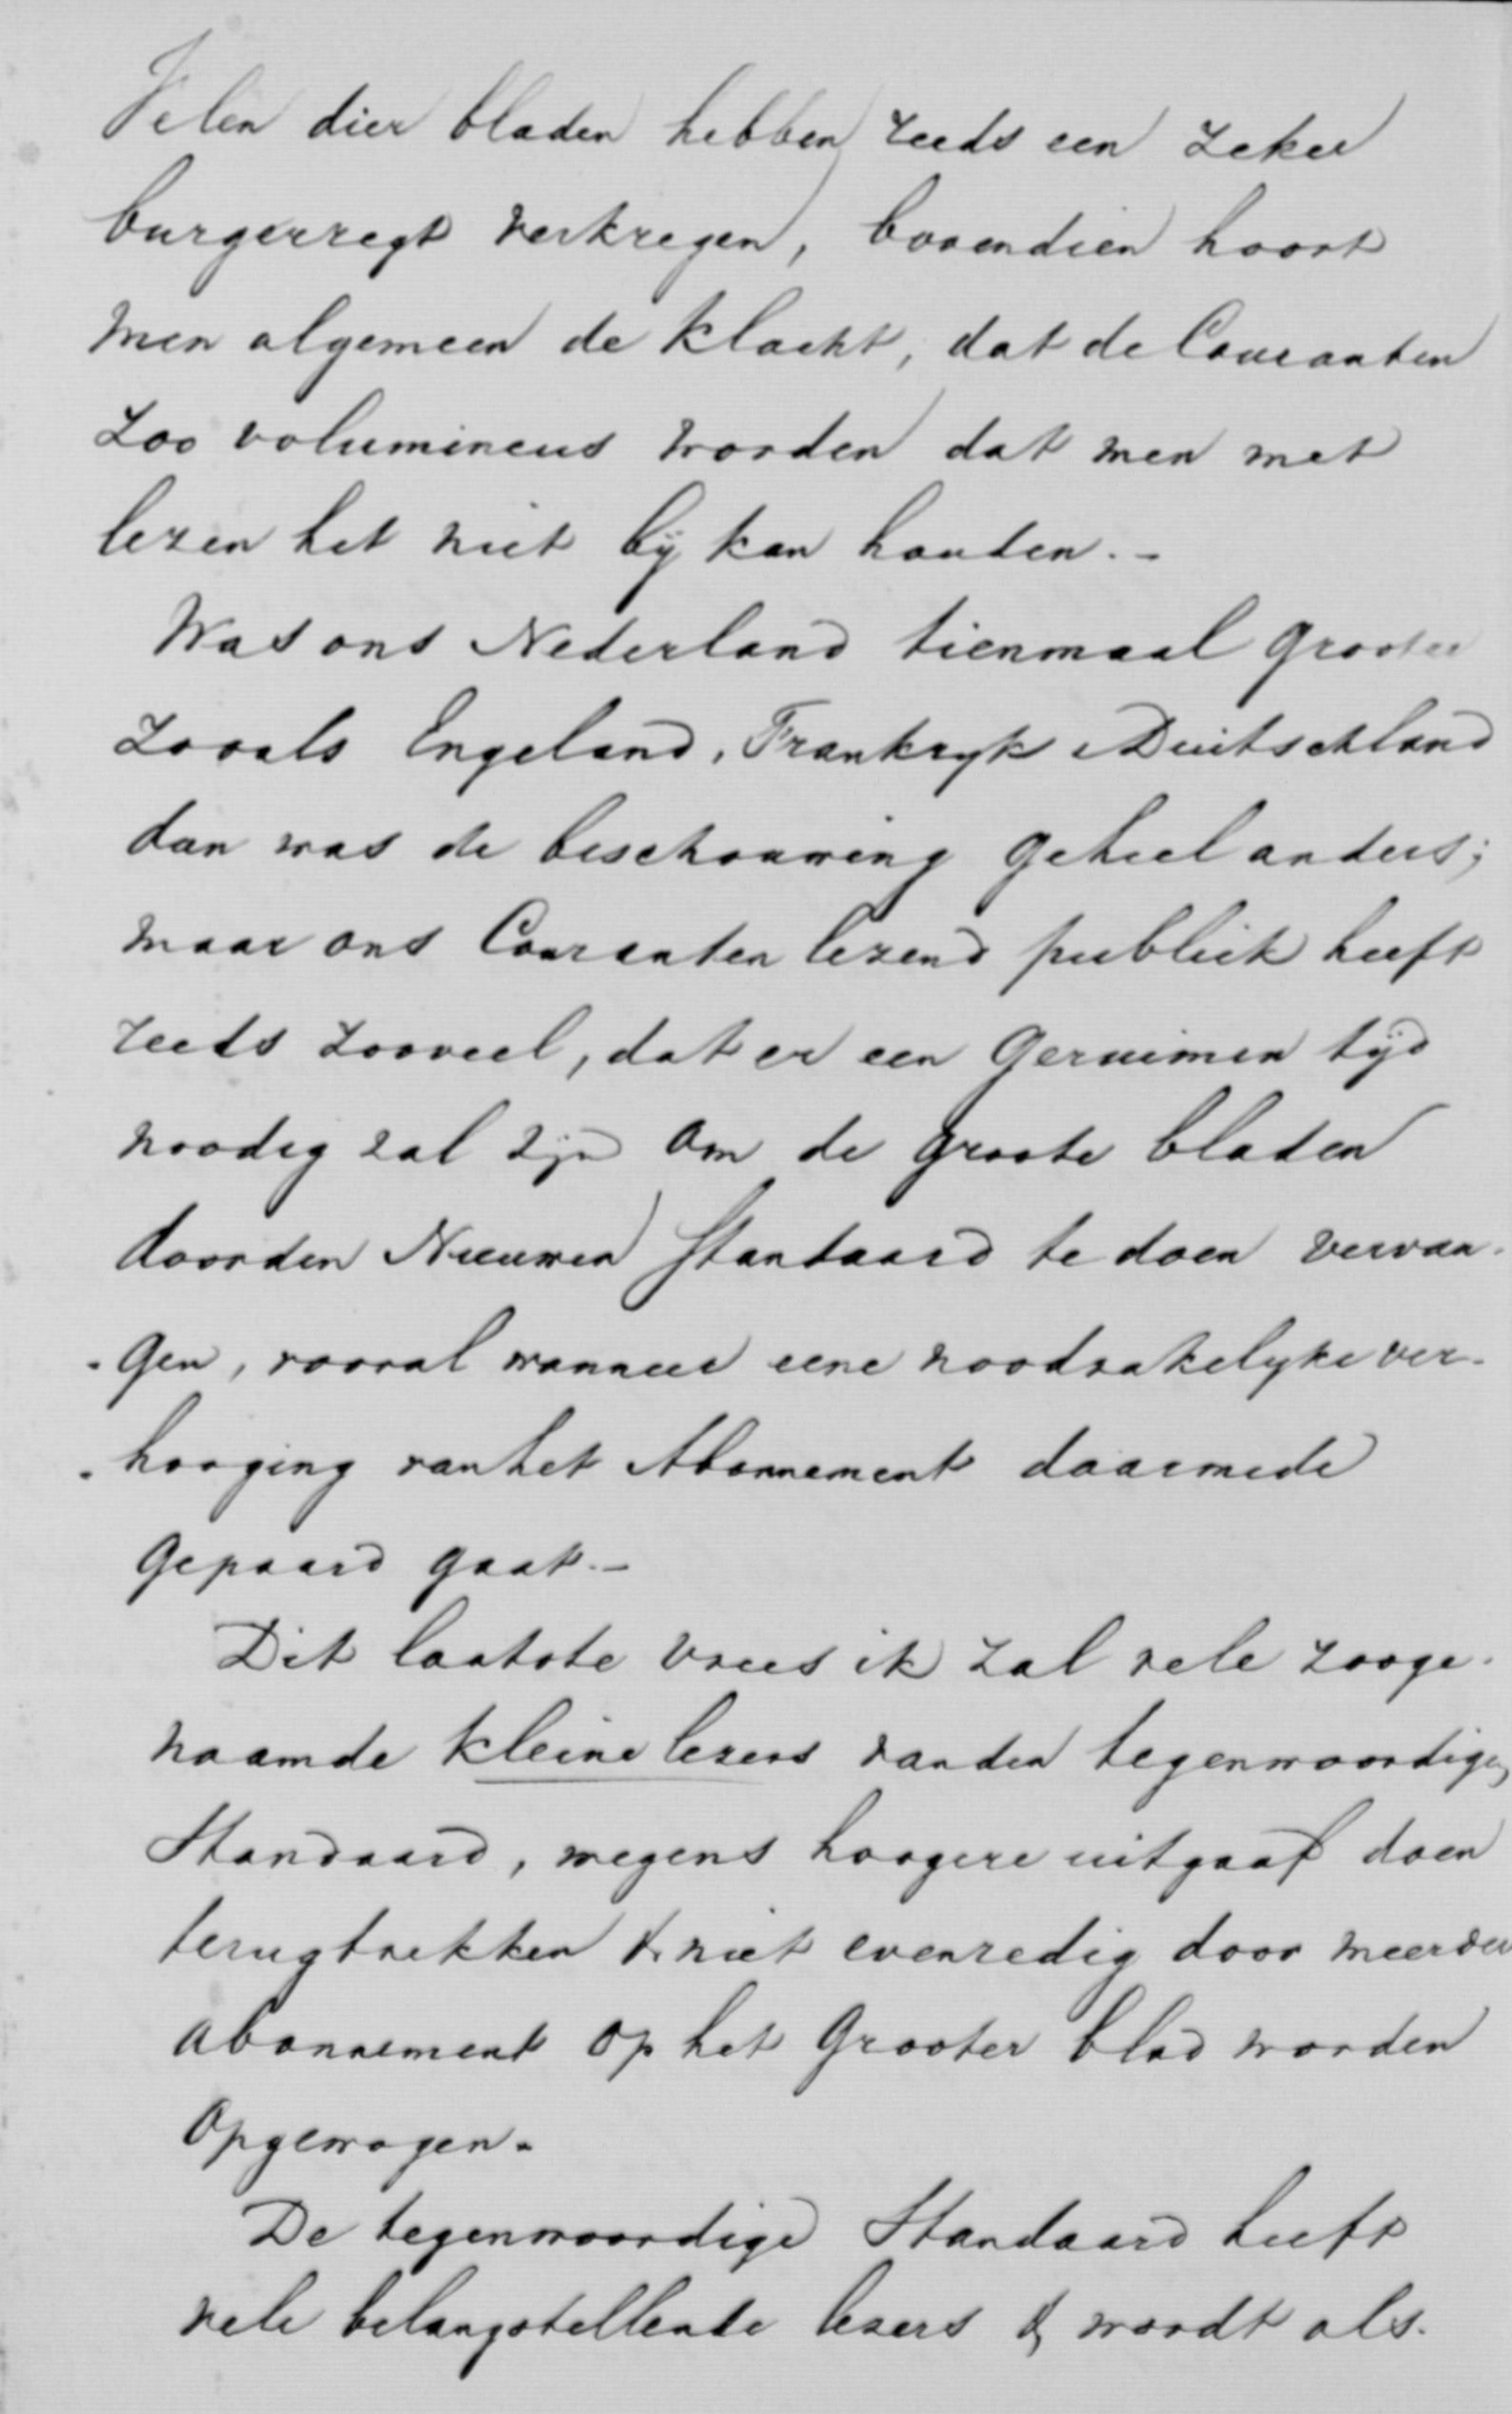 Velen dier bladen hebben reeds een zeker
burgerregt verkregen, bovendien hoort
men algemeen de klacht, dat de Couranten
zoo volumineus worden dat men met
lezen het niet bij kan houden. -
Was ons Nederland tienmaal grooter
zooals Engeland, Frankryk & Duitschland
dan was de beschouwing geheel anders;
maar ons Couranten lezend publiek heeft
reeds zooveel, dat er een geruimen tijd
noodig zal zijn om de groote bladen
door den Nieuwen Standaard te doen vervan-
-gen, vooral wanneer eene noodzakelyke ver-
-hooging van het Abonnement daarmede
gepaard gaat. -
Dit laatste vrees ik zal vele zooge-
naamde kleine lezers van den tegenwoordigen
Standaard, wegens hoogere uitgaaf doen
terugtrekken & niet evenredig door meerder
abonnement op het Grooter blad worden
opgewogen.
De tegenwoordige Standaard heeft
vele belangstellende lezers & wordt als